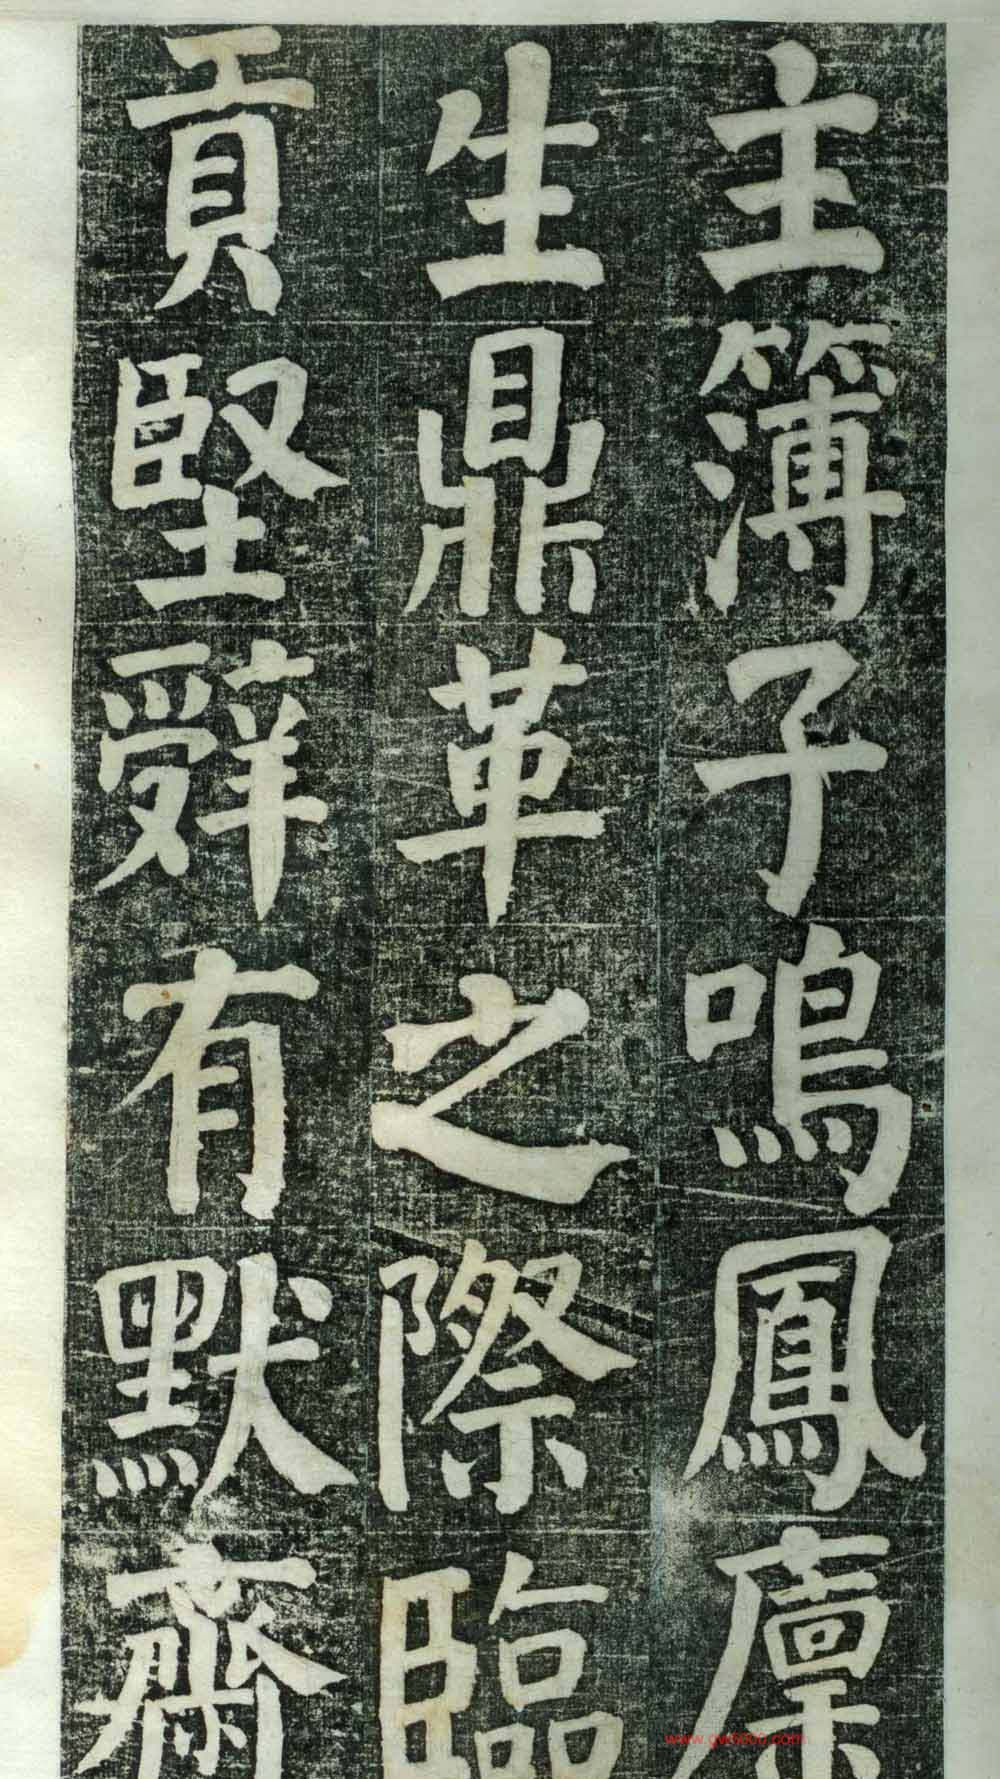 主簿子鳴鳳廩
生鼎革之際臨
貢堅辤有默齋
www.gw6000.com